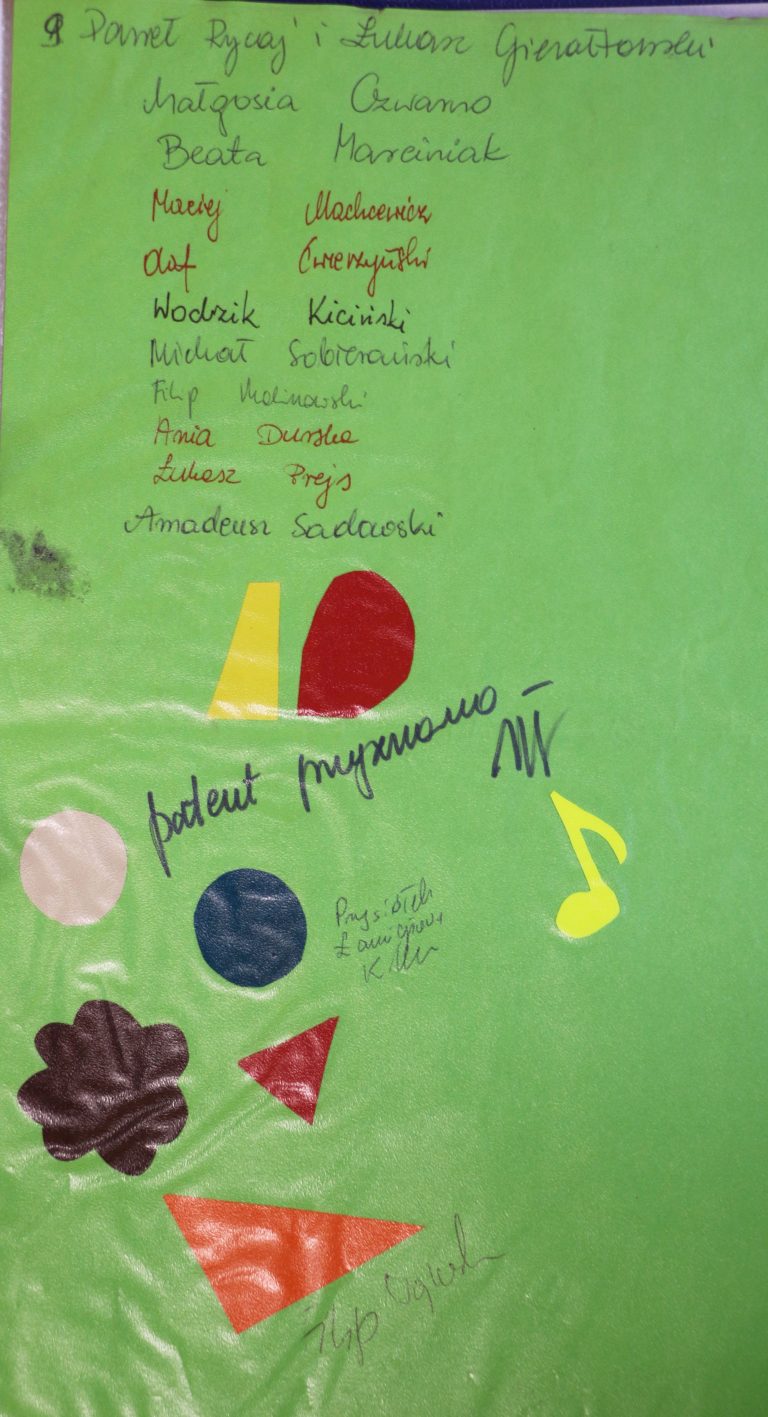 Paweł Rycaj i Łukasz Gierałtowski
Małgosia Czwarno
Beata Marciniak
Maciej Machcewicz
Olaf Ćwierzyński
Wodzik Kiciński
Michał Sobierański
Filip Malinowski
Ania Durska
Łukasz Prejs
Amadeusz Sadowski
patent przyznano –
Przysiółek